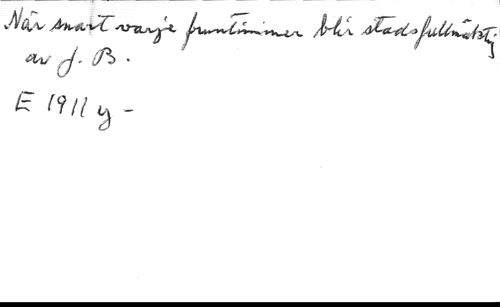 När snart varje fruntimmer blir stadsfullmäktig
av J. B.
E 1911 y -